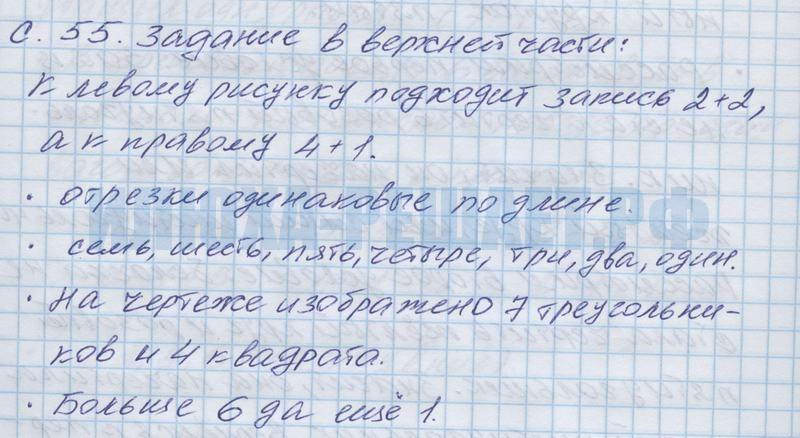 с. 55. Задание в верхней части:
к левому рисунку подходит запись 2+2,
а к правому 4+1.
· отрезки одинаковые по длине.
· семь, шесть, пять, четыре, три, два, один.
· На чертеже изображено 7 треугольни-
ков и 4 квадрата.
· Больше 6 да ещё 1.